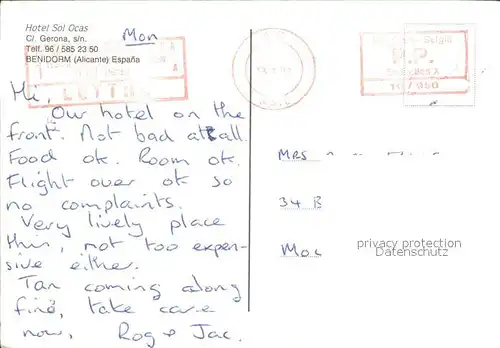 Hotel Sol Ocas
Cl. Gerona, s/n.
Telf. 96 / 585 23 50
BENIDORM (Alicante) España
Mon
Hi,
Our hotel on the
front. Not bad at all.
Food ok. Room ok.
Flight over ok so
no complaints.
Very lively place
this, not too expen-
sive either.
Tan coming along
fine, take care
now, Rog + Jac.
P.P.
MRS
34 B
Moc
privacy protection
Datenschutz